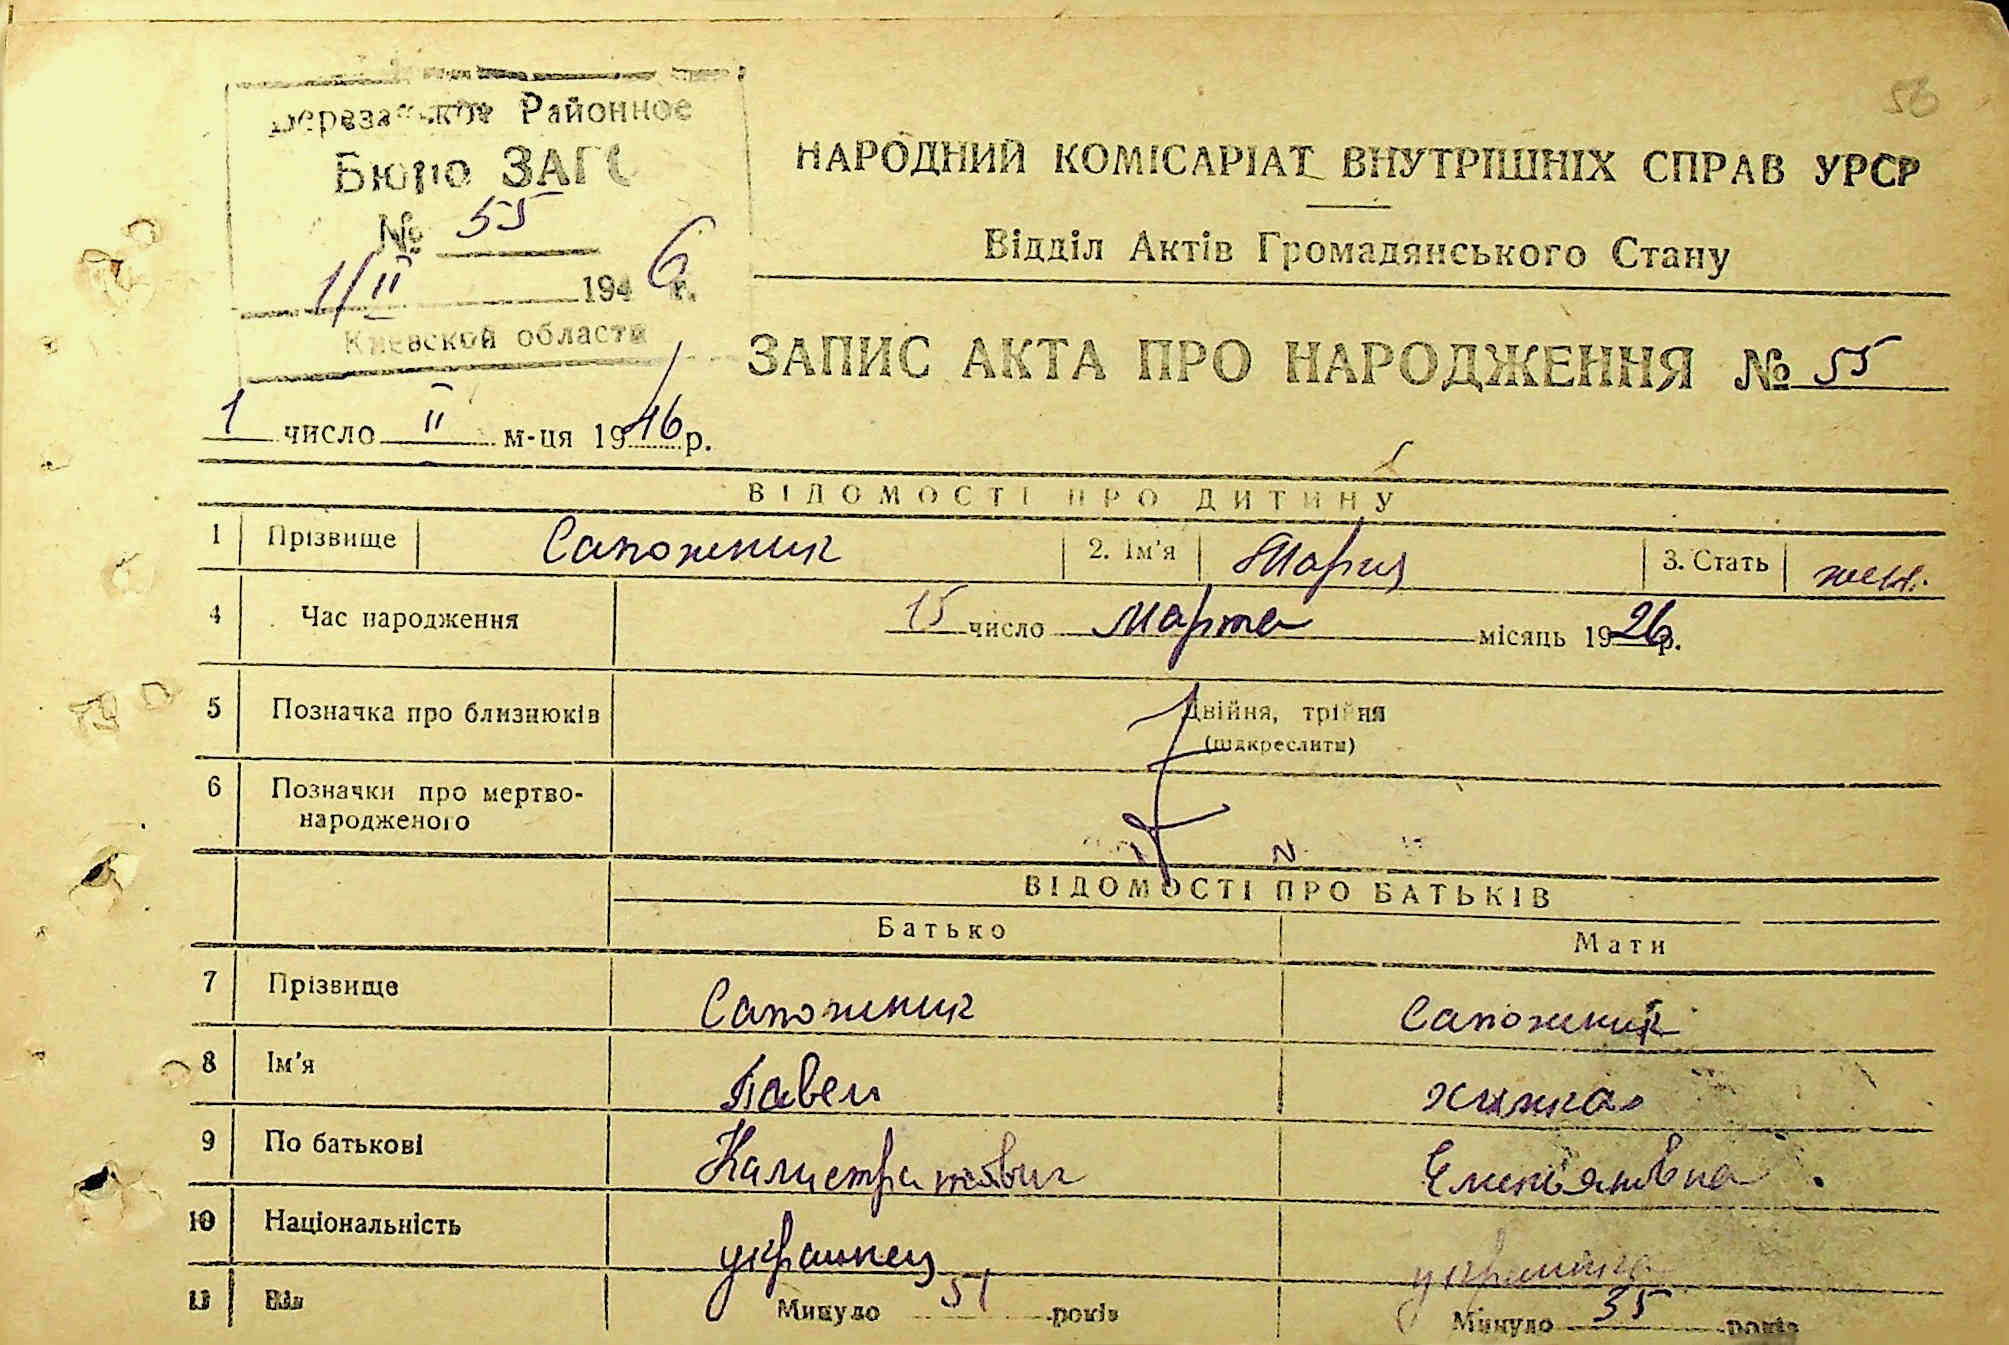 56
Районное
Бюро ЗАГС
№ 55
1/II 1946 г.
Киевской области
НАРОДНИЙ КОМІСАРІАТ ВНУТРІШНІХ СПРАВ УРСР
Відділ Актів Громадянського Стану
ЗАПИС АКТА ПРО НАРОДЖЕННЯ № 55
1 число II м-ця 1946 р.
ВІДОМОСТІ ПРО ДИТИНУ
1 Прізвище Сапожник 2. Ім'я Мария 3. Стать жен.
4 Час народження 15 число Марта місяць 1926 р.
5 Позначка про близнюків Двійня, трійня
(підкреслити)
6 Позначки про мертво-
народженого
ВІДОМОСТІ ПРО БАТЬКІВ
Батько Мати
7 Прізвище Сапожник Сапожник
8 Ім'я Павел
9 По батькові Калистратович Емельяновна
10 Національність украинец украинка
11 Вік Минуло 51 років Минуло 35 років